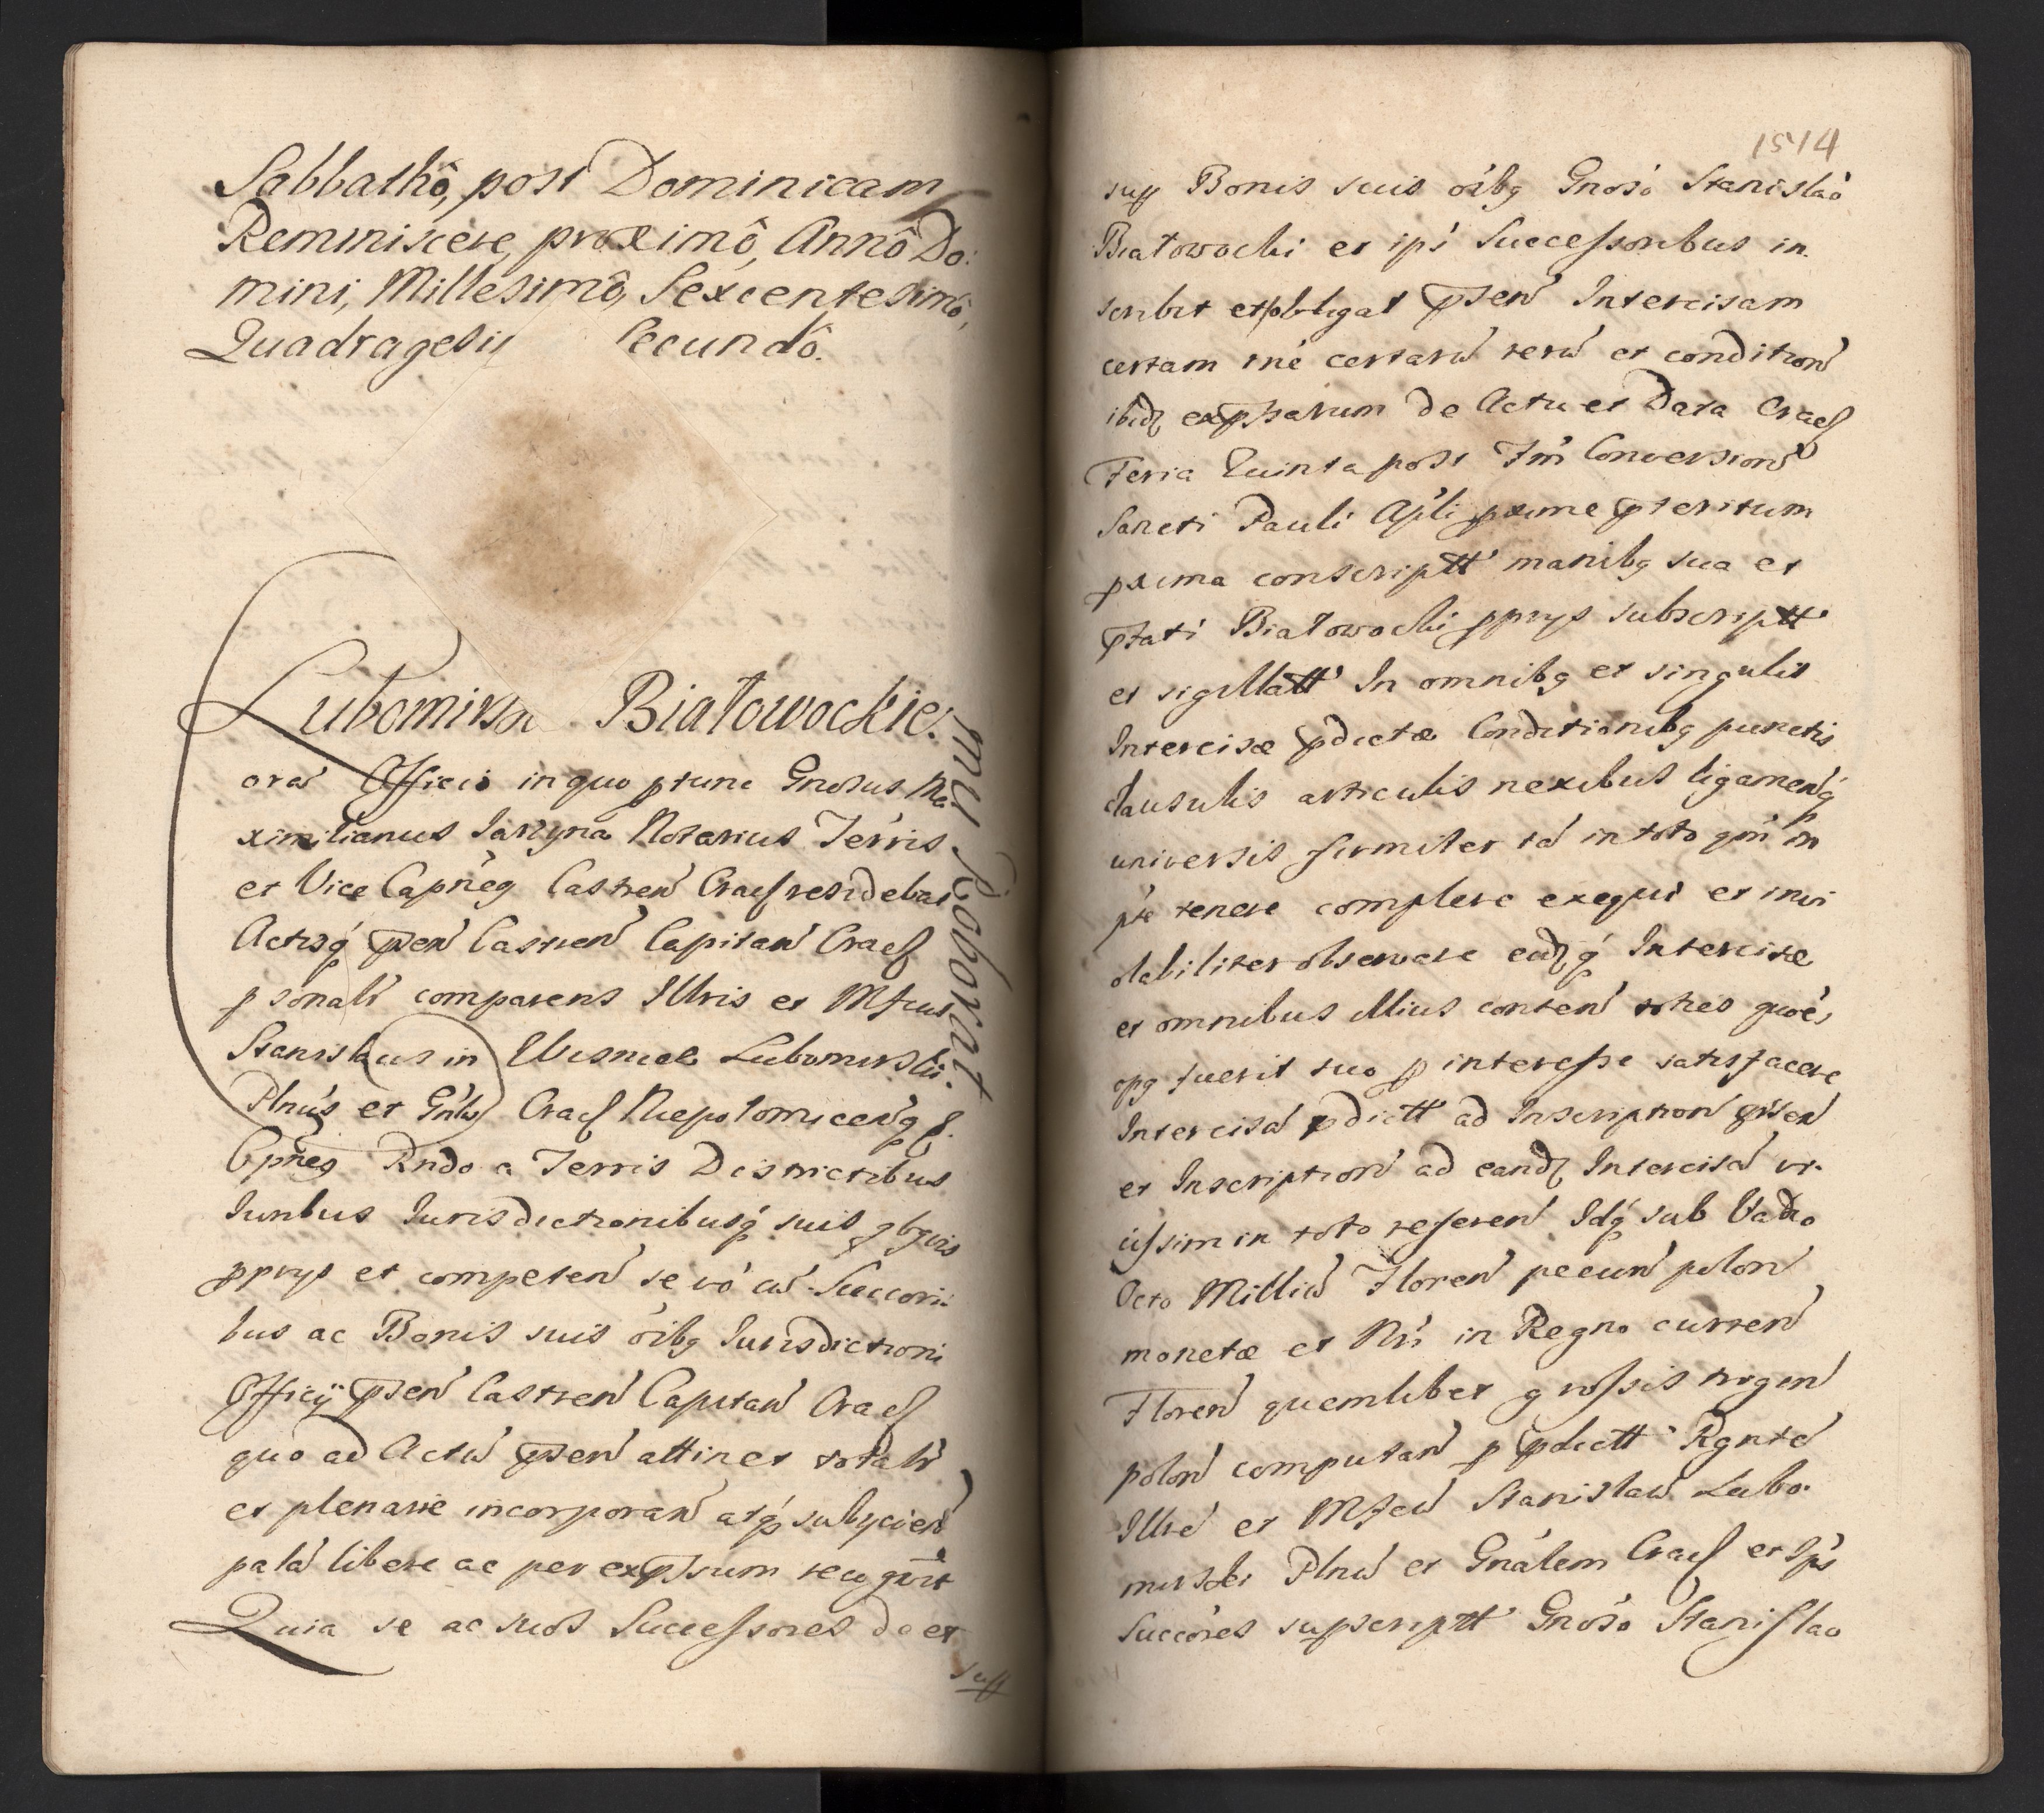 Sabbathô, post Dominicam
Reminiscere, proximô, Annô Do:
mini, Millesimô, Sexcentesimô,
Quadragesiº Secundô.
Lubomirski Białowockie:
mu Roborat
oram Officio in quo ptunc Gnosus Ma
ximilianus Jarzyna Notarius Terris
et Vice Capneg Castren Cracß residebat
Actisq́ pñen Castren Capitan Cracß
psonalr comparens Illris et Mfcus
Stanislaus in Wisnicze Lubomirski:
Plnús et Gnlis Cracß Niepolomicenq́ ß.
Cpneg Rndo a Terris Districtibus
Iuribus Iurisdictionibusq́ suis qbgvis
pprys et competen se vó cu Succori:
bus ac Bonis suis oibg Iurisdictioni
Officÿ pñen Castren Capitan Cracß
quo ad Actu pñen attinet totalr
et plenarie incorporan atq́ subycien
pala libere ac per expssum recognit
Quia se ac suos Successores de et
sup
1514
sup Bonis suis oibg Gnoso Stanislao
Białowocki et ipi Successoribus in
scribit et obligat pñen Intercisam
certam rne certaru reru et condition
ibidß expssarum de Actu et Data Cracß
Feria Quinta post Fm Conversion
Sancti Pauli Apli pxime pteritum
pxima conscriptt manibg sua et
pfati Białowocki pprys subscriptt
et sigillatt In omnibg et singulis
Intercisæ pdictæ Conditionibg punctis
clausulis articulis nexibus ligamenq́
universis firmiter ta in toto qm in
pte tenere complere exequi et invi
olabiliter observare eidßq́ Intercisæ
et omnibus illius conten toties quoé,
opg fuerit suo p interesse satisfacere
Intercisa pdictt ad Inscription pñen
et Inscription ad eandß Intercisa vi
cissim in toto referen Idq́ sub Vadio
Octo Milliu Floren pecun polon
monetæ et Nri in Regno curren
Floren quemlibet grossis trigin
polon computan p pdictt Rgnte
Illre et Mfcu Stanislau Lubo:
mirski Plnu et Gnálem Cracß et Ips
Succóres supscriptt Gnoso Stanislao